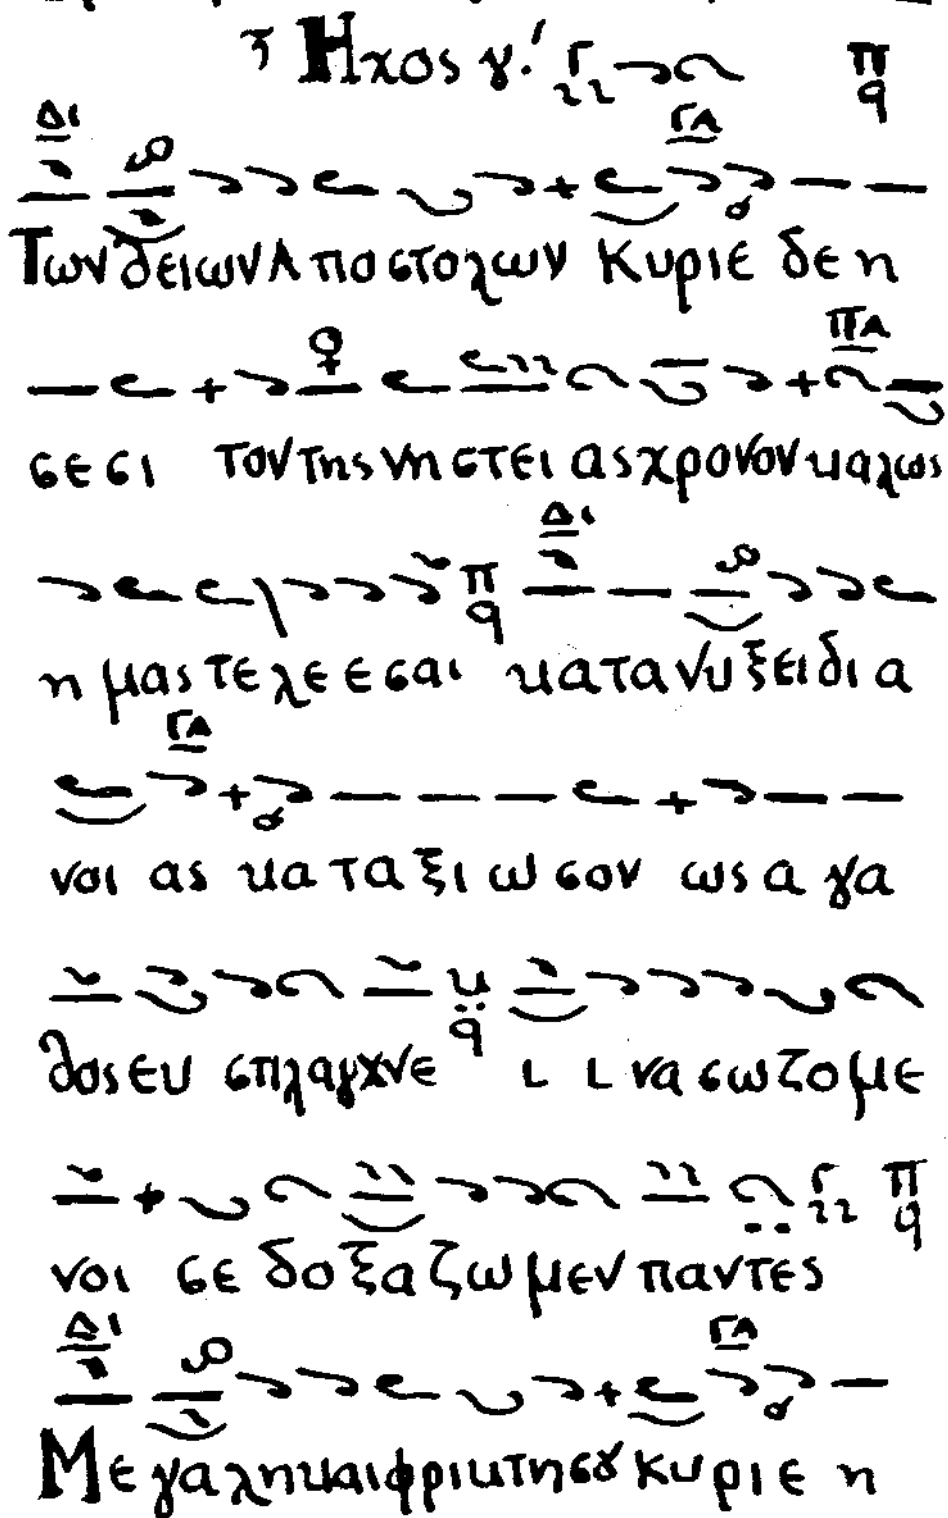 Ηχος γ.' Γ π q
Δι ΓΑ
Των θειων Αποστολων Κυριε δε η
ΠΑ
σε σι τον της νη στει ας χρονον καλως
π q Δι
η μας τε λε ε σαι κατα νυ ξει δι α
ΓΑ
νοι ας κα τα ξι ω σον ως α γα
κ q
θος ευ σπλαγχνε ι ι να σω ζο με
Γ π q
νοι σε δο ξα ζω μεν παντες
Δι ΓΑ
Με γα λη και φρικτη σȣ κυριε η